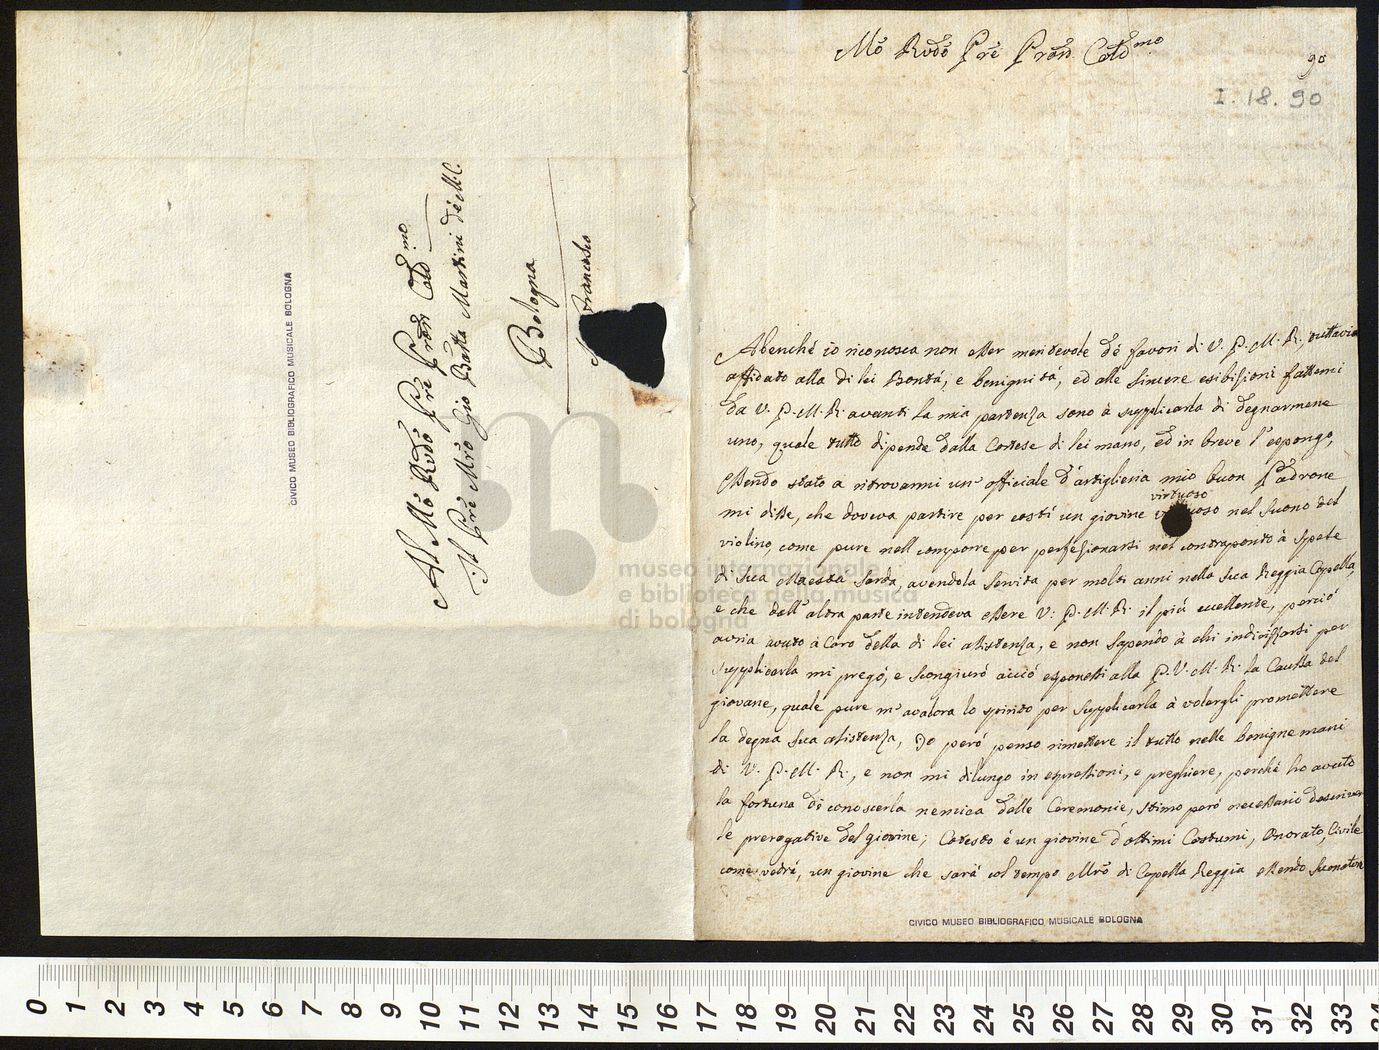 Al Mo Rvdo Pre Pron Cold.mo
Il Pre Mro Gio Batta Martini de M.C.
Bologna
Francesco
CIVICO MUSEO BIBLIOGRAFICO MUSICALE BOLOGNA
Mo Rvdo Pre Pron Cold.mo
90
I. 18. 90
Abenché io riconosca non esser meritevole de favori di V. P. M. R. tuttavia
affidato alla di lei Bontá, e benignitá, ed alle sincere esibisioni fattemi
da V. P. M. R. avanti la mia partenza sono à supplicarla di degnarmene
uno, quale tutto dipende dalla Cortese di lei mano, ed in breve l'espongo,
essendo stato a ritrovarmi un' officiale d'artiglieria mio buon Padrone
virtuoso
mi disse, che doveva partire per costí un giovine nel suono del
violino, come pure nell comporre per perfesionarsi nel contraponto à spese
di Sua Maestá Sarda, avendola Servita per molti anni nella Sua Reggia Capella,
e che dall' altra parte intendeva essere V. P. M. R. il piú eccellente, perció
avria avuto à Caro della di lei assistenza, e non sapendo à chi indirizzarsi per
supplicarla mi pregó, e scongiuró acció esponessi alla P. V. M. R. la Caussa del
giovane, quale pure m' avalora lo spirito per supplicarla à volergli promettere
la degna sua assistenza, Io peró penso rimettere il tutto nelle benigne mani
di V. P. M. R., e non mi dilungo in espressioni, e preghiere, perché ho avuto
la fortuna di conoscerla nemica delle Ceremonie, stimo peró necessario descriver
le prerogative del giovine; Cotesto é un giovine d'ottimi Costumi, Onorato, Civile
come vedrá, un giovine che sará col tempo Mro di Capella Reggia essendo suonatore
CIVICO MUSEO BIBLIOGRAFICO MUSICALE BOLOGNA
museo internazionale
e biblioteca della musica
di bologna
0 1 2 3 4 5 6 7 8 9 10 11 12 13 14 15 16 17 18 19 20 21 22 23 24 25 26 27 28 29 30 31 32 33